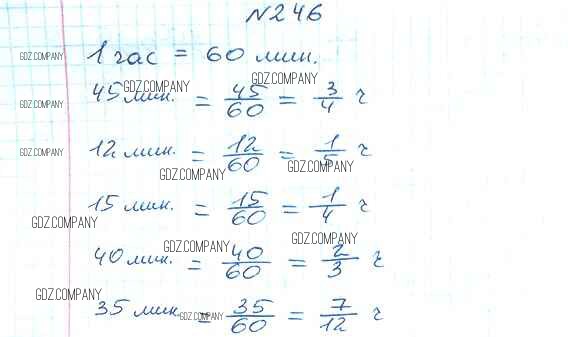 №246
GDZ.COMPANY 1 час = 60 мин.
GDZ.COMPANY GDZ.COMPANY
GDZ.COMPANY 45 мин. = 45/60 = 3/4 ч
GDZ.COMPANY 12 мин. = 12/60 = 1/5 ч
GDZ.COMPANY GDZ.COMPANY
15 мин. = 15/60 = 1/4 ч
GDZ.COMPANY
GDZ.COMPANY GDZ.COMPANY
40 мин. = 40/60 = 2/3 ч
GDZ.COMPANY
35 мин. = 35/60 = 7/12 ч
GDZ.COMPANY